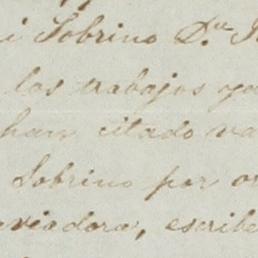 i Sobrino Dn
los trabajos
han citado va
Sobrino por
aviadora, escribe